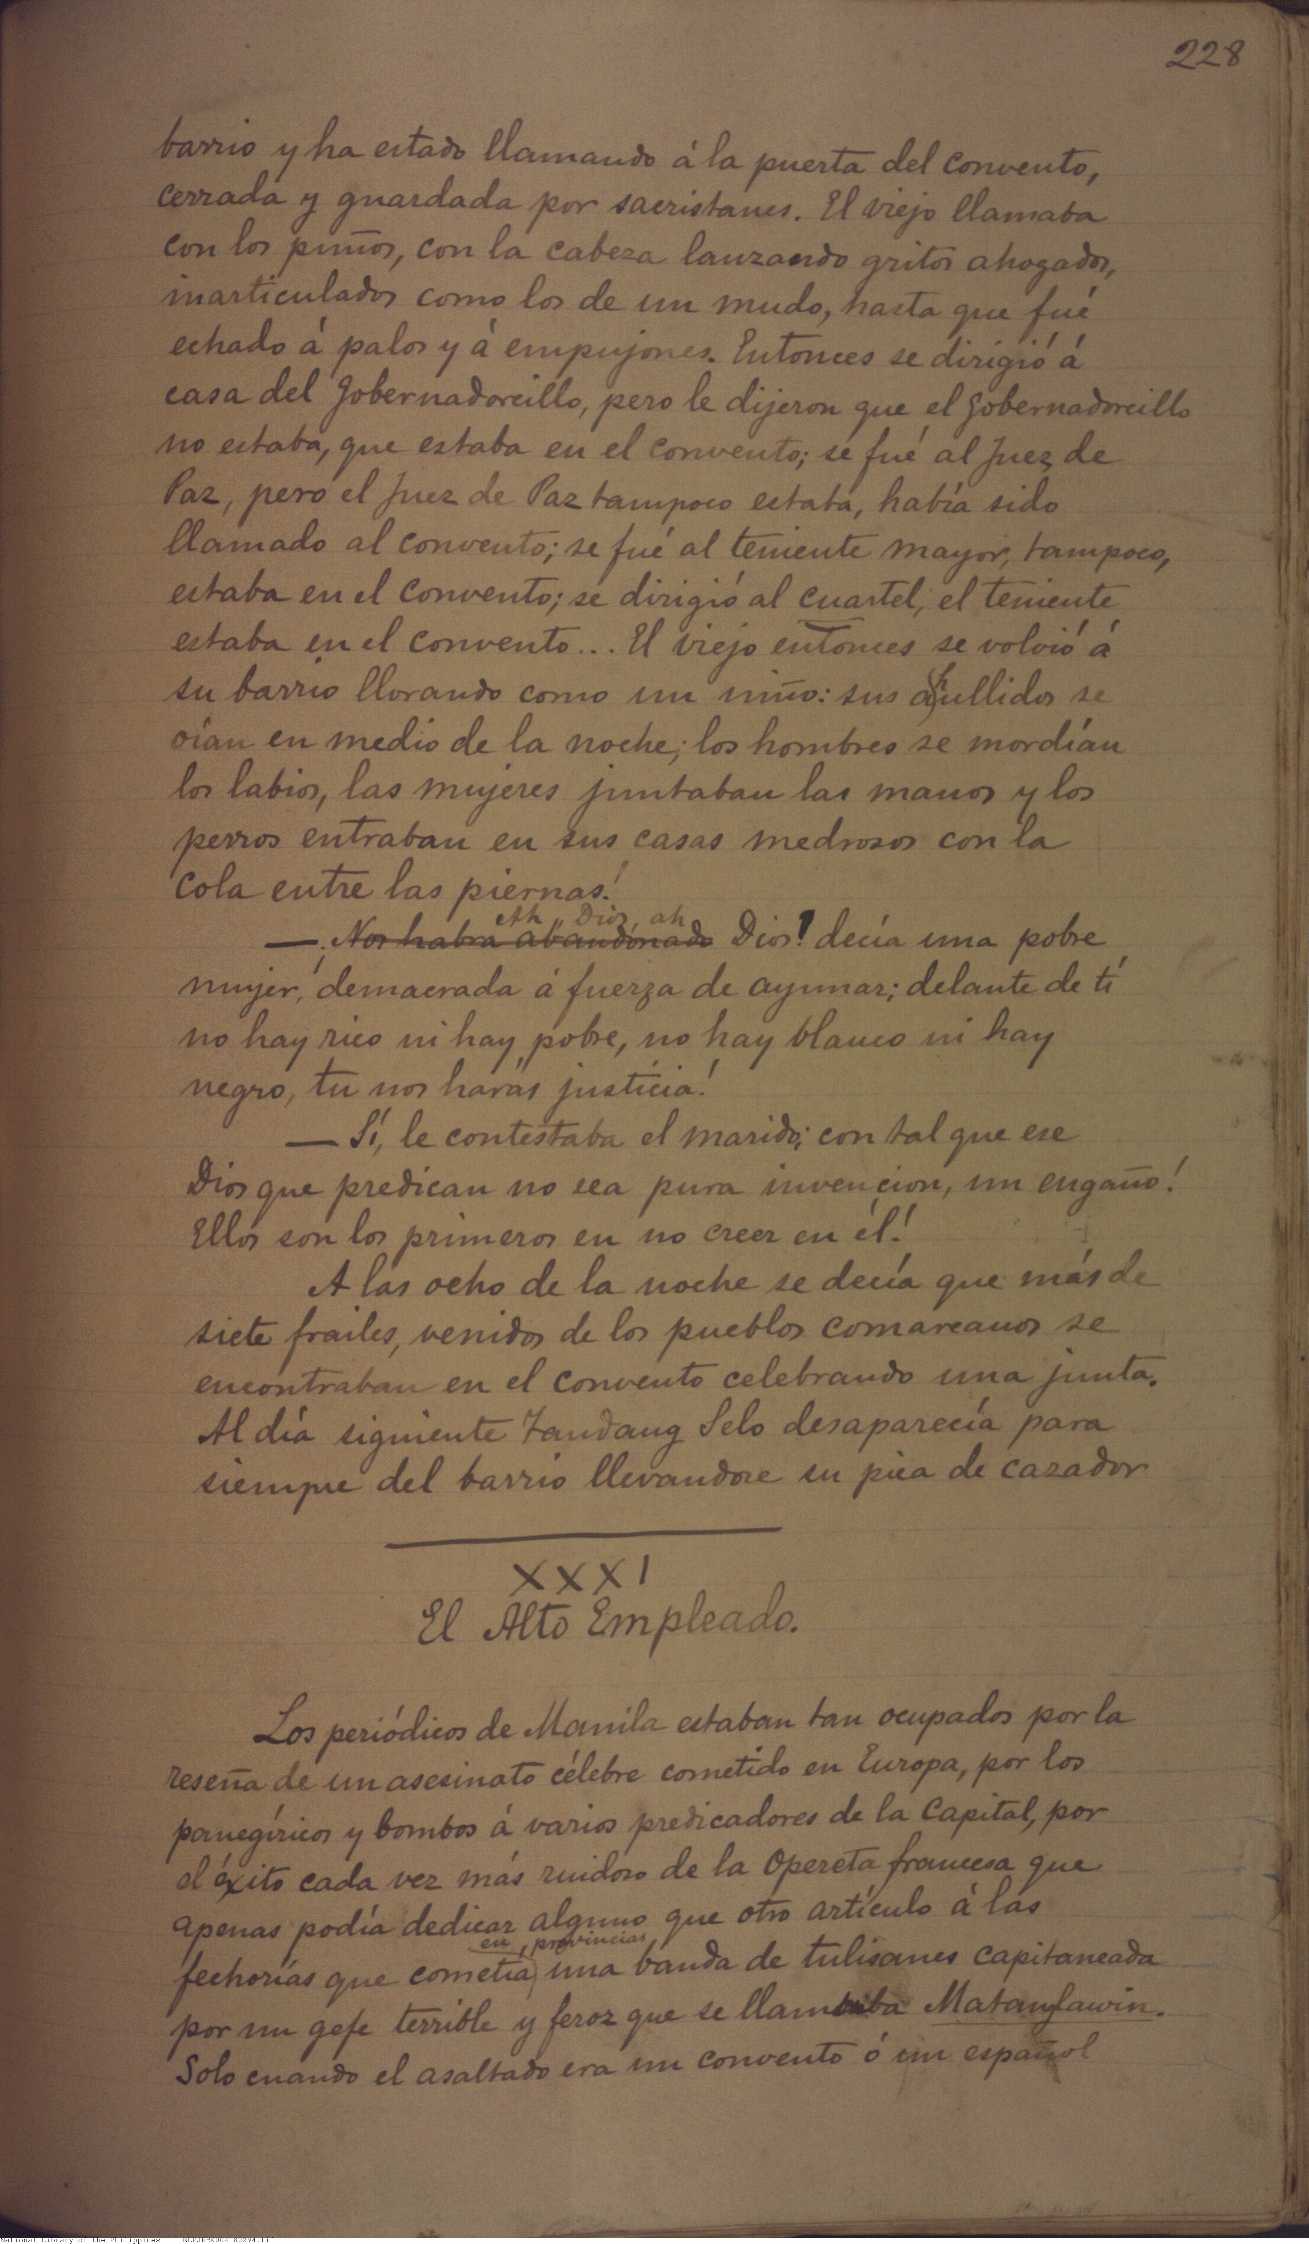 228
barrio y ha estado llamando á la puerta del convento,
cerrada y guardada por sacristanes. El viejo llamaba
con los puños, con la cabeza lanzando gritos ahogados,
inarticulados como los de un mudo, hasta que fué
echado á palos y á empujones. Entonces se dirigió á
casa del gobernadorcillo, pero le dijeron que el gobernadorcillo
no estaba, que estaba en el convento; se fué al Juez de
Paz, pero el Juez de Paz tampoco estaba, había sido
llamado al convento; se fué al teniente mayor, tampoco,
estaba en el convento; se dirigió al cuartel, el teniente
estaba en el convento... El viejo entonces se volvió á
su barrio llorando como un niño: sus ahullidos se
oían en medio de la noche; los hombres se mordían
los labios, las mujeres juntaban las manos y los
perros entraban en sus casas medrosos con la
cola entre las piernas!
Ah, Dios, ah
—¡Nos habra abandonado Dios! decía una pobre
mujer, demacrada á fuerza de ayunar; delante de tí
no hay rico ni hay pobre, no hay blanco ni hay
negro, tu nos harás justicia!
— Sí, le contestaba el marido; con tal que ese
Dios que predican no sea pura invencion, un engaño!
Ellos son los primeros en no creer en él!
A las ocho de la noche se decía que más de
siete frailes, venidos de los pueblos comarcanos se
encontraban en el convento celebrando una junta.
Al día siguiente Tandang Selo desaparecía para
siempre del barrio llevandose su pica de cazador
XXXI
El Alto Empleado.
Los periódicos de Manila estaban tan ocupados por la
reseña de un asesinato célebre cometido en Europa, por los
panegíricos y bombos á varios predicadores de la Capital, por
el éxito cada vez más ruidoso de la Opereta francesa que
apenas podía dedicar alguno que otro artículo á las
en provincias,
fechorías que cometía una banda de tulisanes capitaneada
por un gefe terrible y feroz que se llamaba Matanglawin.
Solo cuando el asaltado era un convento ó un español